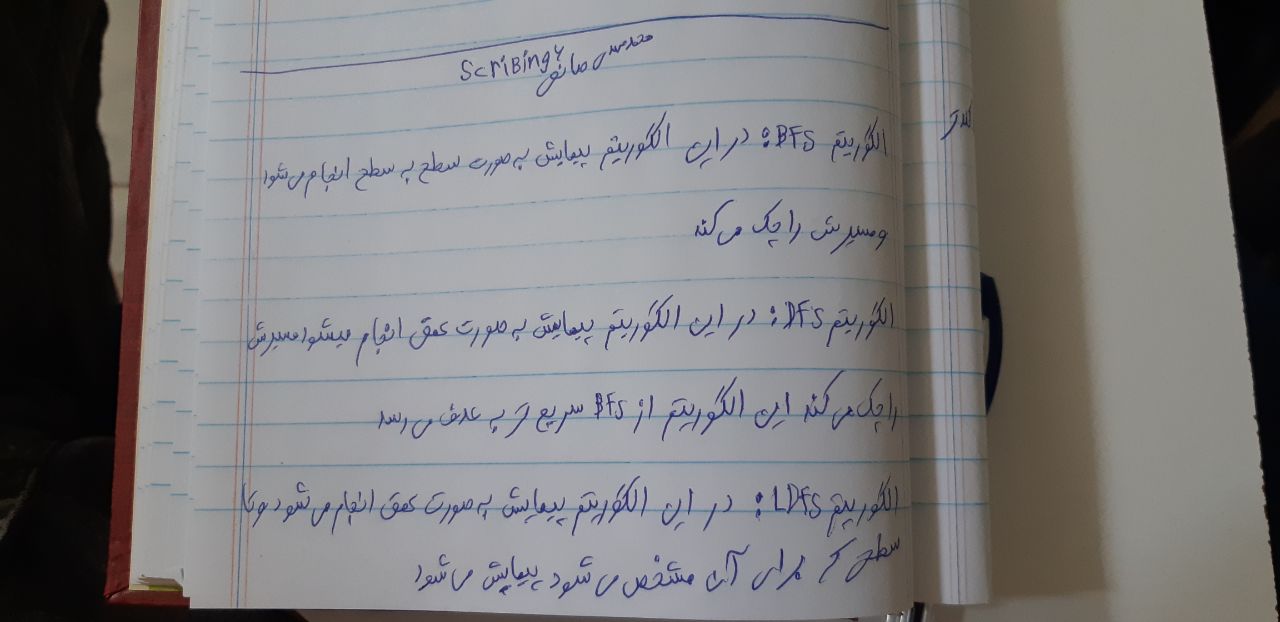 محمدمهدی صانعی Scribing4
الگوریتم BFS: در این الگوریتم پیمایش به صورت سطح به سطح انجام می شود
و مسیرش را چک می کند
الگوریتم DFS: در این الگوریتم پیمایش به صورت عمق انجام میشود مسیرش
را چک می کند این الگوریتم از BFS سریع تر به هدف می رسد
الگوریتم LDFS: در این الگوریتم پیمایش به صورت عمق انجام می شود و تا
سطح که برای آن مشخص می شود پیمایش می شود